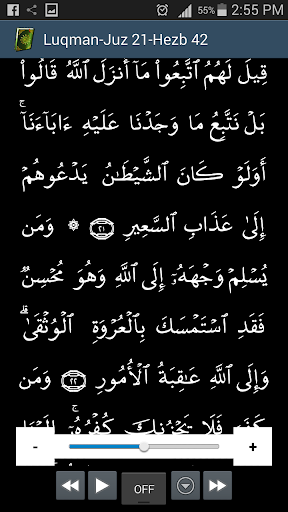 55% 2:55 PM
Luqman-Juz 21-Hezb 42
قِيلَ لَهُمُ ٱتَّبِعُوا۟ مَآ أَنزَلَ ٱللَّهُ قَالُوا۟
بَلْ نَتَّبِعُ مَا وَجَدْنَا عَلَيْهِ ءَابَآءَنَآ ۚ
أَوَلَوْ كَانَ ٱلشَّيْطَـٰنُ يَدْعُوهُمْ
إِلَىٰ عَذَابِ ٱلسَّعِيرِ ٢١ ۞ وَمَن
يُسْلِمْ وَجْهَهُۥٓ إِلَى ٱللَّهِ وَهُوَ مُحْسِنٌ
فَقَدِ ٱسْتَمْسَكَ بِٱلْعُرْوَةِ ٱلْوُثْقَىٰ ۗ
وَإِلَى ٱللَّهِ عَـٰقِبَةُ ٱلْأُمُورِ ٢٢ وَمَن
كَفَرَ فَلَا يَحْزُنكَ كُفْرُهُۥٓ ۚ إِلَيْنَا
- +
OFF